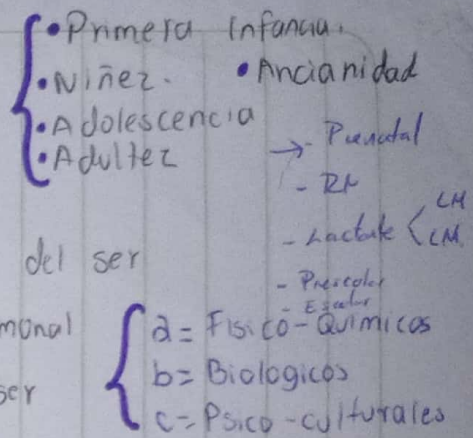 • Primera Infancia.
• Niñez. • Ancianidad
• Adolescencia
• Adultez
→ - Prenatal
- RN
- Lactate < LM
LM
del ser
- Preescolar
- Escolar
monal
a = Fisico-Quimicos
ser
b = Biologicos
c = Psico-culturales